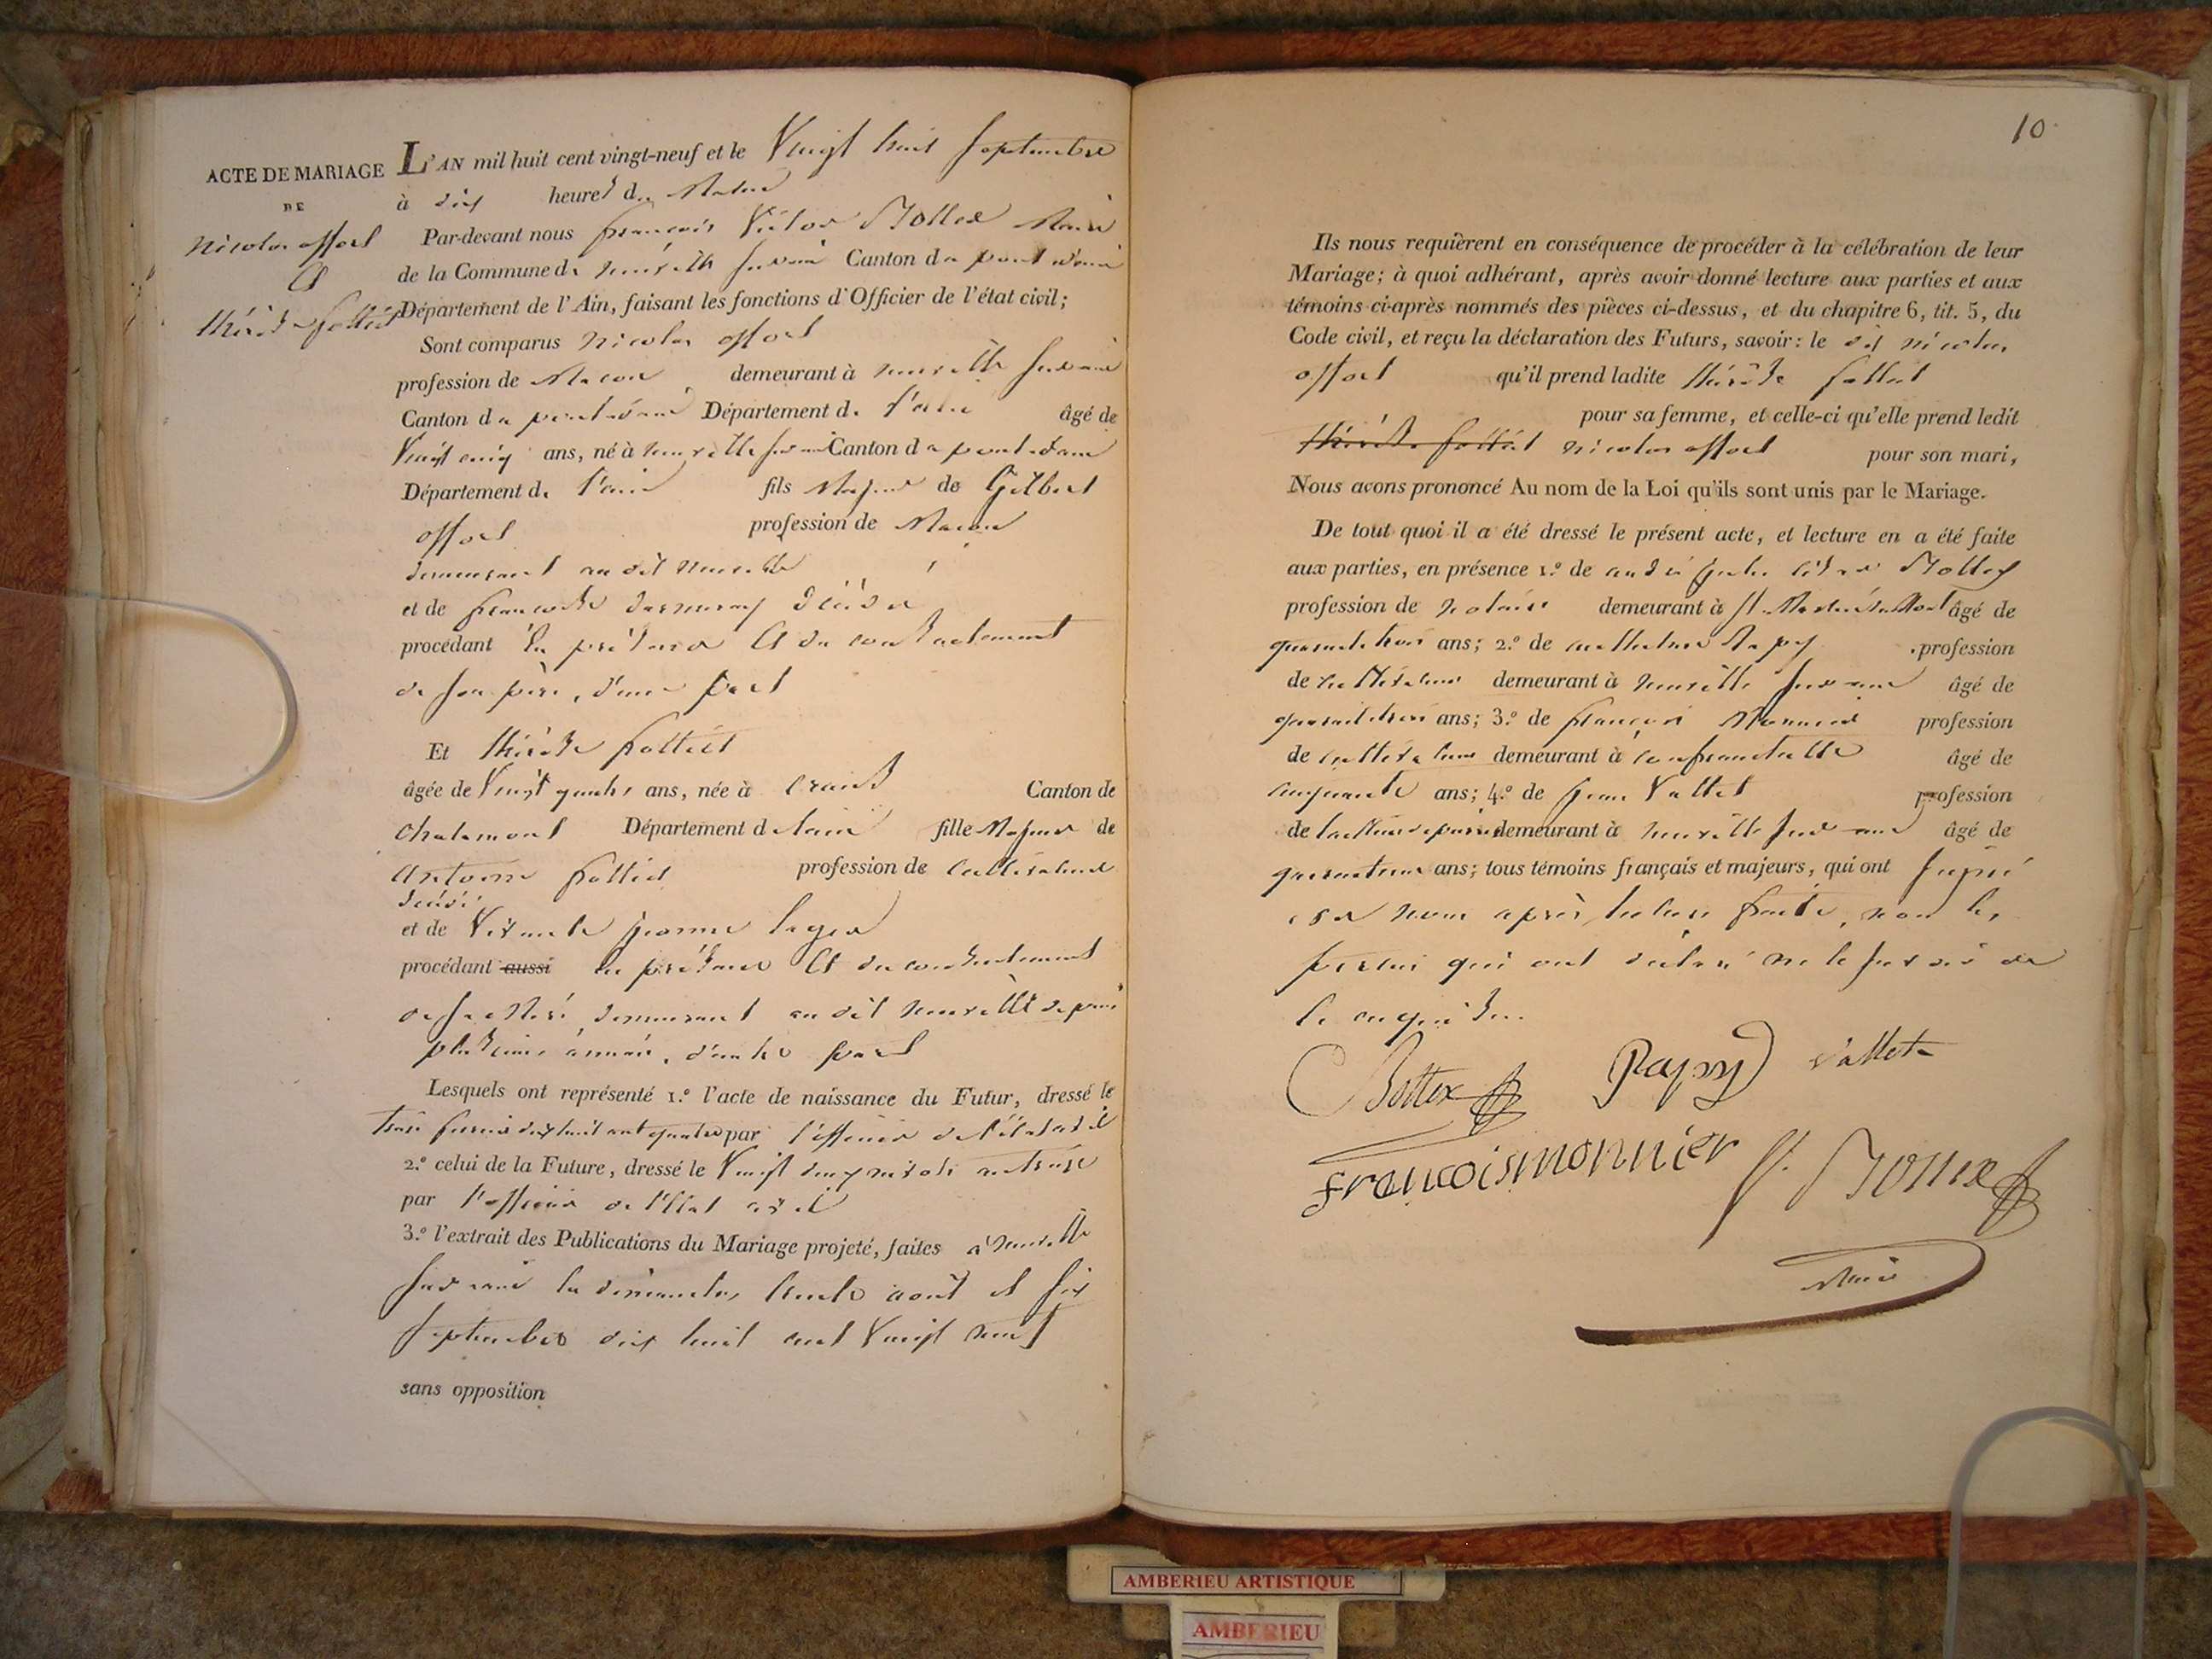 ACTE DE MARIAGE
DE
Nicolas offort
Et
thérèse
L'AN mil huit cent vingt-neuf et le Vingt huit Septembre
à dix heures du Matin
Par-devant nous françois Victor Bottex Maire
de la Commune de neuville sur ain Canton de pont d'ain
Département de l'Ain, faisant les fonctions d'Officier de l'état civil;
Sont comparus Nicolas offort
profession de Macon demeurant à neuville sur ain
Canton de pont d'ain Département de l'ain âgé de
Vingt cinq ans, né à neuville sur ain Canton de pont d'ain
Département de l'ain fils Majeur de Gilbert
offort profession de Macon
demeurant au dit neuville
et de françoise décédée
procédant en présence Et du consentement
de son père, d'une part
Et thérèse
âgée de Vingt quatre ans, née à Crans Canton de
Chalamont Département de lain fille Majeure de
Antoine profession de Cultivateur
décédé
et de Vivante jeanne
procédant aussi en présence Et du consentement
de sa Mère, demeurant au dit neuville depuis
plusieurs années, d'autre part
Lesquels ont représenté 1.º l'acte de naissance du Futur, dressé le
dix huit cent quatre par l'officier de l'état civil
2.º celui de la Future, dressé le Vingt cinq an treize
par l'officier de l'Etat civil
3.º l'extrait des Publications du Mariage projeté, faites à neuville
sur ain les dimanches trente août et six
septembre dix huit cent Vingt neuf
sans opposition
10
Ils nous requièrent en conséquence de procéder à la célébration de leur
Mariage; à quoi adhérant, après avoir donné lecture aux parties et aux
témoins ci-après nommés des pièces ci-dessus, et du chapitre 6, tit. 5, du
Code civil, et reçu la déclaration des Futurs, savoir: le dit nicolas
offort qu'il prend ladite thérèse
pour sa femme, et celle-ci qu'elle prend ledit
thérèse nicolas offort pour son mari,
Nous avons prononcé Au nom de la Loi qu'ils sont unis par le Mariage.
De tout quoi il a été dressé le présent acte, et lecture en a été faite
aux parties, en présence 1.º de andré Bottex
profession de notaire demeurant à St Martin du Mont âgé de
quarante trois ans; 2.º de profession
de cultivateur demeurant à neuville sur ain âgé de
quarante trois ans; 3.º de françois Monnier profession
de cultivateur demeurant à confranchette âgé de
cinquante ans; 4.º de jean Vallet profession
de demeurant à neuville sur ain âgé de
ans; tous témoins français et majeurs, qui ont signé
avec nous après lecture faite, non les
futurs qui ont déclaré ne le savoir de
ce enquis
Bottex Papy Vallet
francoismonnier V. Bottex
Maire
AMBERIEU ARTISTIQUE
AMBERIEU